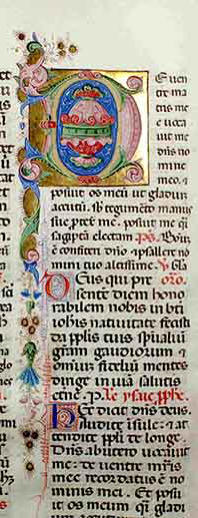 E uen
tre ma
tris me
e uoca
uit me
dñs no
mine
meo. ⁊
posuit os meū ut gladiū
acutū. sb tegumēto manus
sue ptexit me. posuit me qͣsi
sagittā electam. ps. Bonū
ē confiteri dño. ⁊ psallere no
mini tuo altissime. ℣ Gl'a
Deus qui pre oro.
sentē diem hono
rabilem nobis in bti
iohis natiuitate fecisti
da pplis tuis spũaliũ
gratiam gaudiorum ⁊
omniũ fideliũ mentes
dirige in uiã salutis
etne. p. Lc ysaie pphe.
Hec dicit dñs deus.
Audite isule: ⁊ at
tendite ppli de longe.
Dñs ab utero uocauit
me: de uentre mr̃is
mee recordatus ē no
minis mei. Et posu
it os meum qͣi gladi